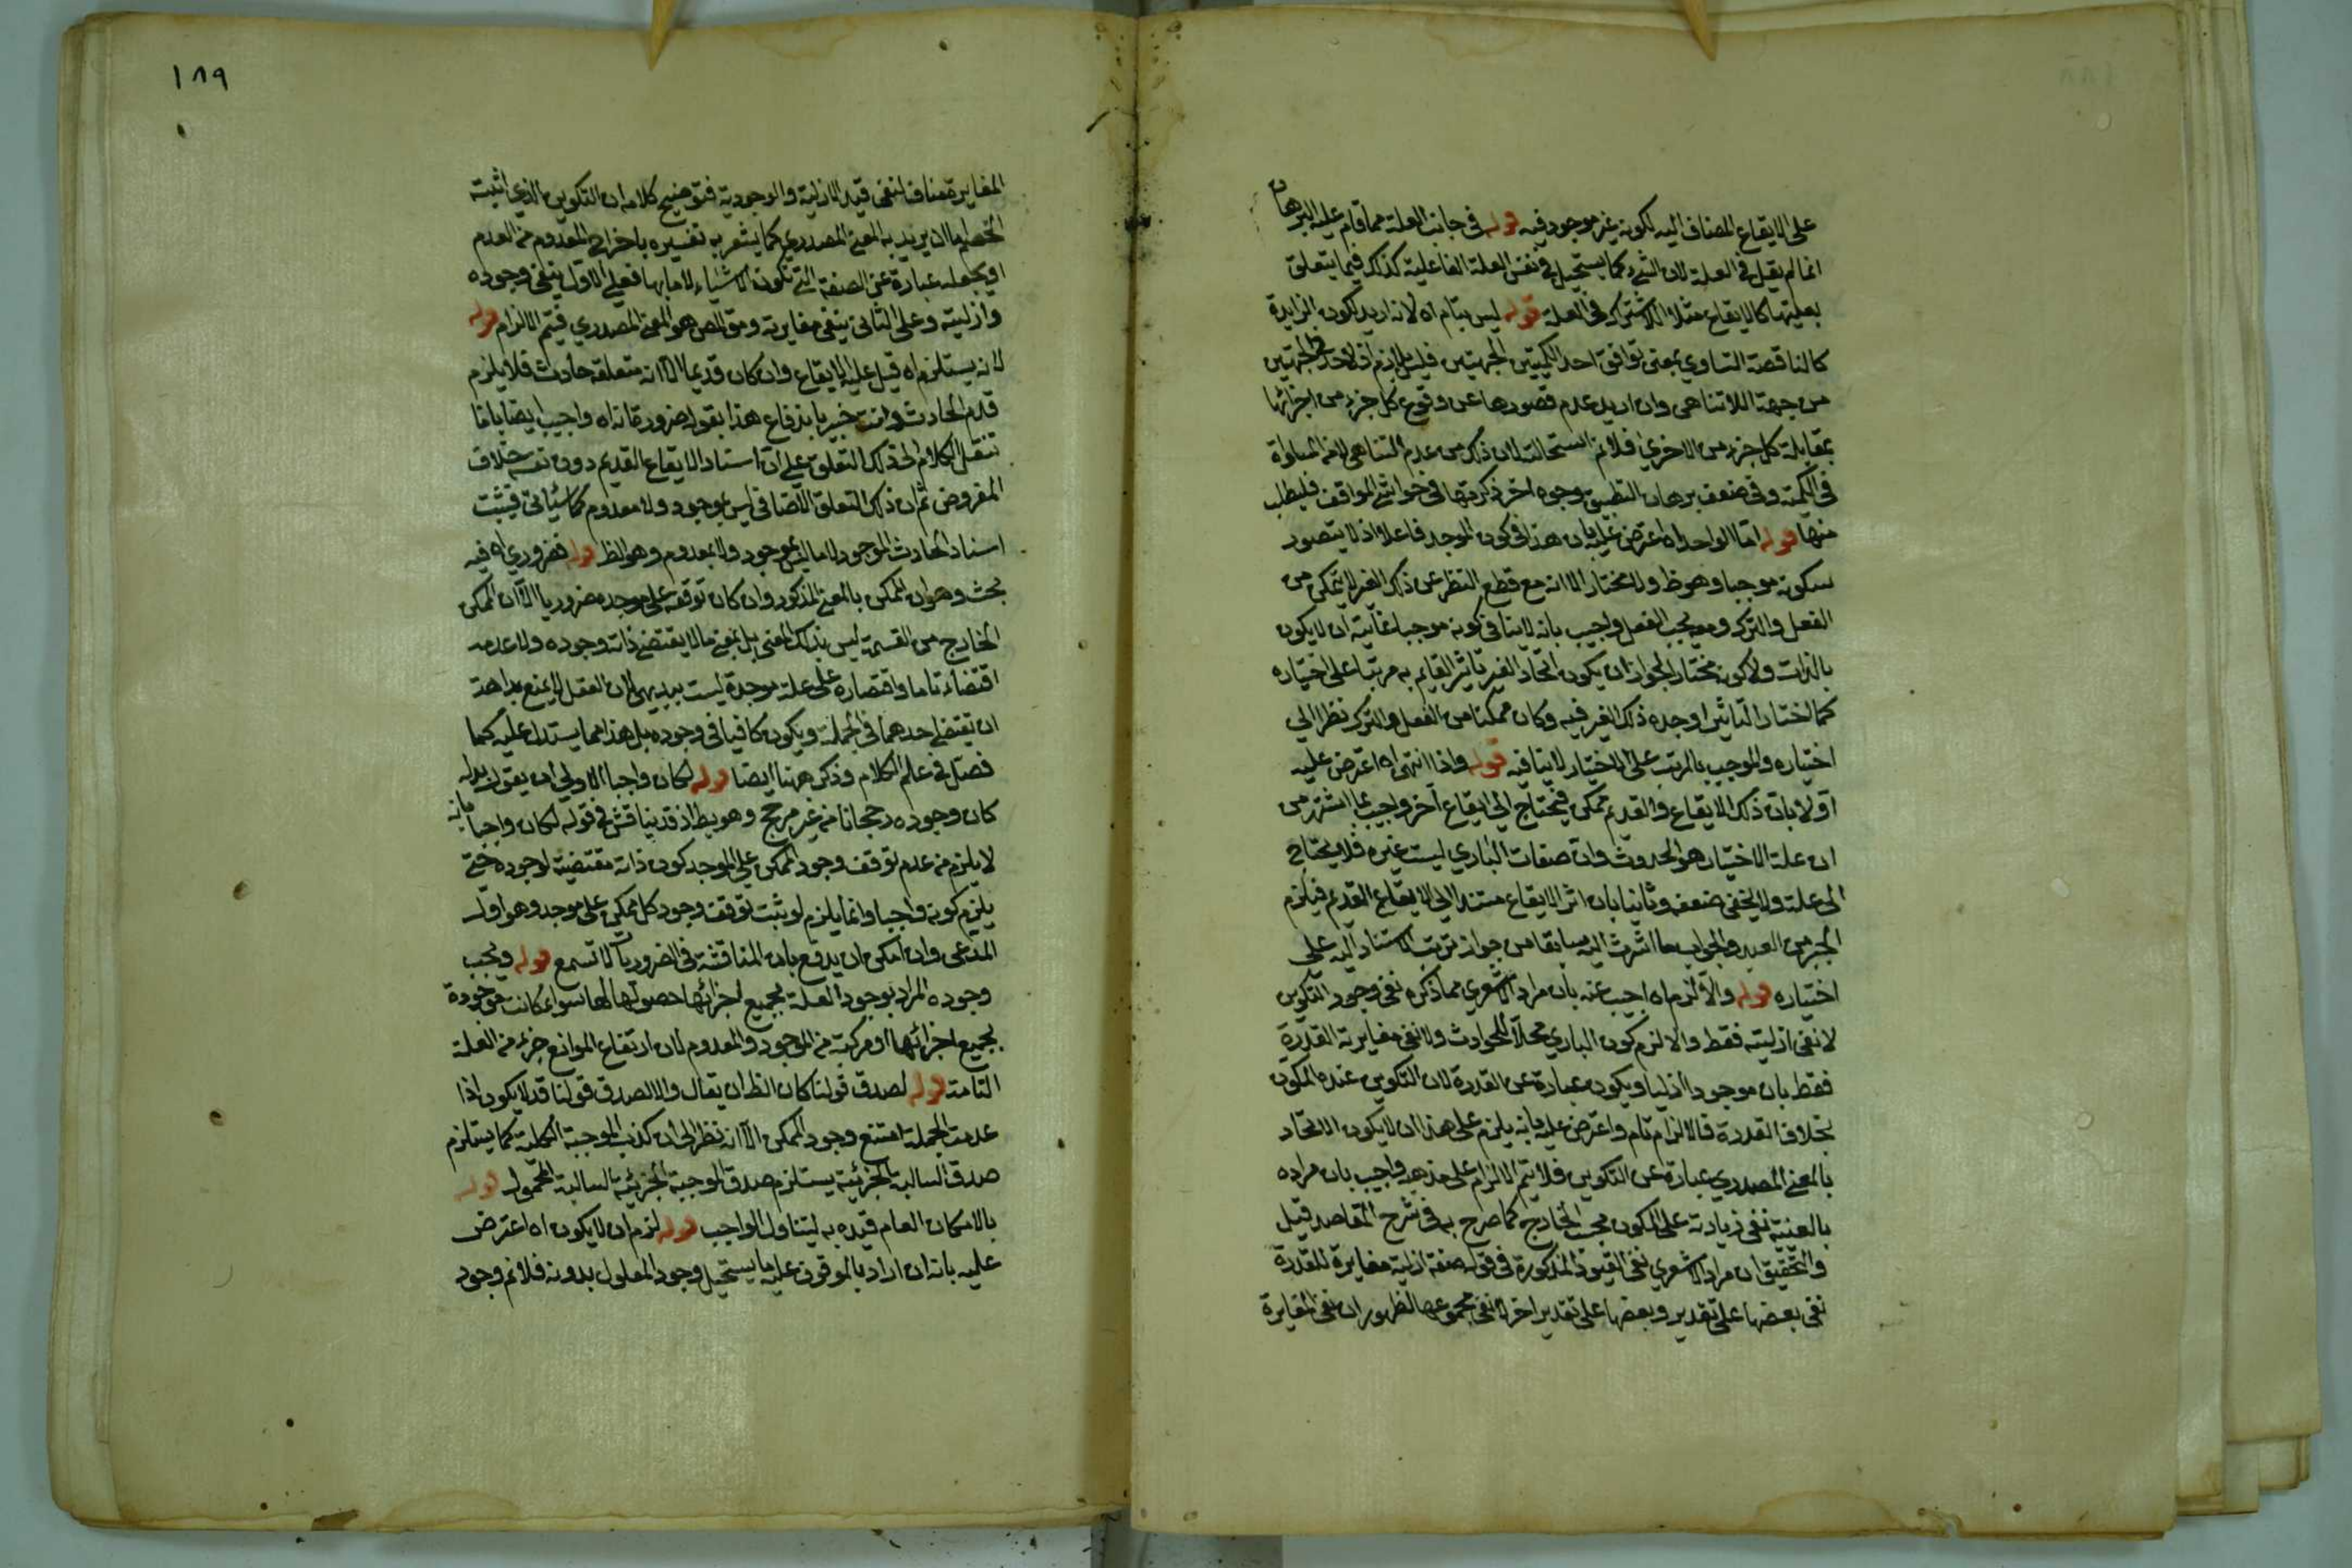 على الايقاع المضاف اليه لكونه غير موجود فيه قوله فى جانب العلة مما قام عليه البرهان
انما لم يقل فى العلة لان الشئ كما يستحيل فى نفس العلة الفاعلية كذلك فيما يتعلق
بعليتها كالايقاع مثلا فى العلة قوله ليس بتام اه لانه ان اريد بكون الزايدة
كالناقصة التساوي بمعنى توافق احد الكميتين الجهتين فليس بلازم
من جهة اللاتناهى وان اريد عدم قصورها عن وقوع كل جزء من اجزائها
بمقابلة كل جزء من الاخرى فلا نم استحالته لان ذلك من عدم التناهى لا من المساواة
فى الكمية وفى ضعف برهان التطبيق وجوه اخر ذكرتها فى حواشى المواقف فليطلب
منها قوله اما الواحد اه اعترض عليه بان هذا فى كون الموجد فاعلا اذ لا يتصور
سكونه موجبا وهو ظ ولا مختارا لانه مع قطع النظر عن ذلك الغير لا يتمكن من
الفعل والترك ومعه يجب الفعل واجيب بانه لا ينافى كونه موجبا غايته ان لا يكون
بالذات ولا كونه مختارا لجواز ان يكون اتحاد الغير تاثير القايم به مرتبا على اختياره
كما اختار التاثير اوجده ذلك الغير فيه وكان ممكنا من الفعل والترك نظرا الى
اختياره والموجب بالمرتب على الاختيار لا ينافيه قوله واذا انتهى اه اعترض عليه
اولا بان ذلك الايقاع والقديم ممكن فيحتاج الى ايقاع آخر واجيب بما اشتهر من
ان علة الاختيار هو الحدوث وان صفات البارى ليست غيره فلا يحتاج
الى علة ولا يخفى ضعفه وثانيا بان اثر الايقاع مستند الى الايقاع القديم فيلزم
الجبر من العبد والجواب ما اشرت اليه سابقا من جواز ترتب الاستناد اليه على
اختياره قوله والا لزم اه اجيب عنه بان مراد الاشعرى مما ذكره نفى وجود التكوين
لا نفى ازليته فقط والا لزم كون البارى محلا للحوادث ولا نفى مغايرته القدرة
فقط بان موجودا ازليا ويكون عبارة عن القدرة لان التكوين عنده المكون
بخلاف القدرة فالالزام تام واعترض عليه بانه يلزم على هذا ان لا يكون الاتحاد
بالمعنى المصدرى عبارة عن التكوين فلا يتم الالزام على مذهبه واجيب بان مراده
بالعينية نفى زيادته على المكون بحسب الخارج كما صرح به فى شرح المقاصد قيل
والتحقيق ان مراد الاشعرى نفى القيود المذكورة فى قوله صفة ازلية مغايرة للقدرة
نفى بعضها على تقدير وبعضها على تقدير اخر لا نفى مجموعها لظهور ان نفى المغايرة
١٨٩
المغايرة معناه انتفى قيد الازلية والوجودية فتوضيح كلامه ان التكوين الذى اثبته
الخصم اما ان يريد به المعنى المصدرى كما يشعر به تفسيره باخراج المعدوم من العدم
او يجعله عبارة عن الصفة التى تكون الاشياء لاجلها فعلى الاول ينفى وجوده
وازليته وعلى الثانى ينفى مغايرته هو المعنى المصدرى فيتم الالزام قوله
لانه يستلزم اه قيل عليه الايقاع وان كان قديما الا انه متعلقه حادث فلا يلزم
قدم الحادث وانت خبير باندفاع هذا بقوله ضرورة انه اه واجيب ايضا بانا
ننقل الكلام الى ذلك التعلق على ان استناد الايقاع القديم دون نفسه خلاف
المفروض ثم ان ذلك التعلق الاضافى ليس بموجود ولا معدوم كما سيأتى فيثبت
اسناد الحادث الموجود لما ليس بموجود ولا بمعدوم وهو الظ قوله فضروري اه فيه
بحث وهو ان الممكن بالمعنى المذكور وان كان توقفه على موجده ضروريا الا ان الممكن
الخارج من القسمة ليس بذلك المعنى بل بمعنى ما لا يقتضى ذاته وجوده ولا عدمه
اقتضاء تاما واقتصاره على علة موجدة ليست ببديهى لان العقل لا يمنع بداهة
ان يقتضى احدهما فى الجملة ويكون كافيا فى وجوده بل هذا مما يستدل عليه كما
فصل فى علم الكلام وذكر ههنا ايضا قوله لكان واجبا الاولى ان يقول بدله
كان وجوده رجحانا من غير مرجح وهو بط اذ قد يناقش فى قوله لكان واجبا بانه
لا يلزم من عدم توقف وجود الممكن على الموجد كون ذاته مقتضية لوجوده حتى
يلزم كونه واجبا وانما يلزم لو ثبت توقف وجود كل ممكن على موجد وهو اول
المدعى وان امكن ان يدفع بان المناقشة فى الضروريات لا تسمع قوله ويجب
وجوده المراد بوجود العلة بجميع اجزائها حصولها لها سواء كانت موجودة
بجميع اجزائها او مركبة من الموجود والمعدوم لان ارتفاع الموانع جزء من العلة
التامة قوله لصدق قولنا كان الظ ان يقال والا لصدق قولنا قد لا يكون اذا
عدمت الجملة امتنع وجود الممكن الا انه نظر الى ان كذب الموجبة الكلية كما يستلزم
صدق السالبة الجزئية يستلزم صدق الموجبة الجزئية السالبة المحمول قوله
بالامكان العام قيده به ليتناول الواجب قوله لزم ان لا يكون اه اعترض
عليه بانه ان اراد بالموقوف عليه ما يستحيل وجود المعلول بدونه فلا نم وجود